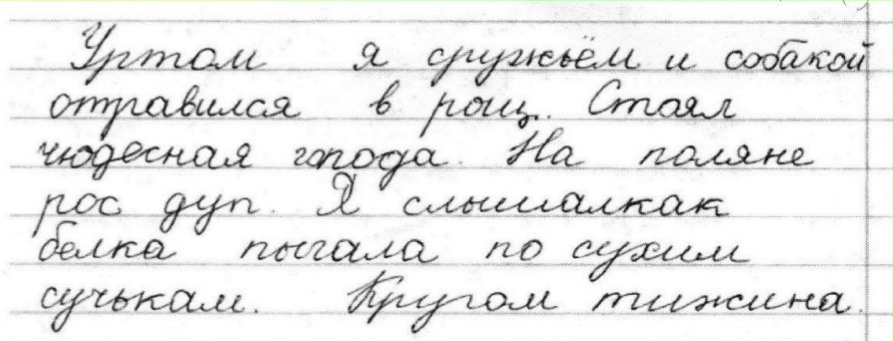 Уртом я сружъём и собакой
отравился в рощ. Стоял
чюдесная гпода. На поляне
рос дуп. Я слышалкак
белка пыгала по сухим
сучькам. Кругом тижина.